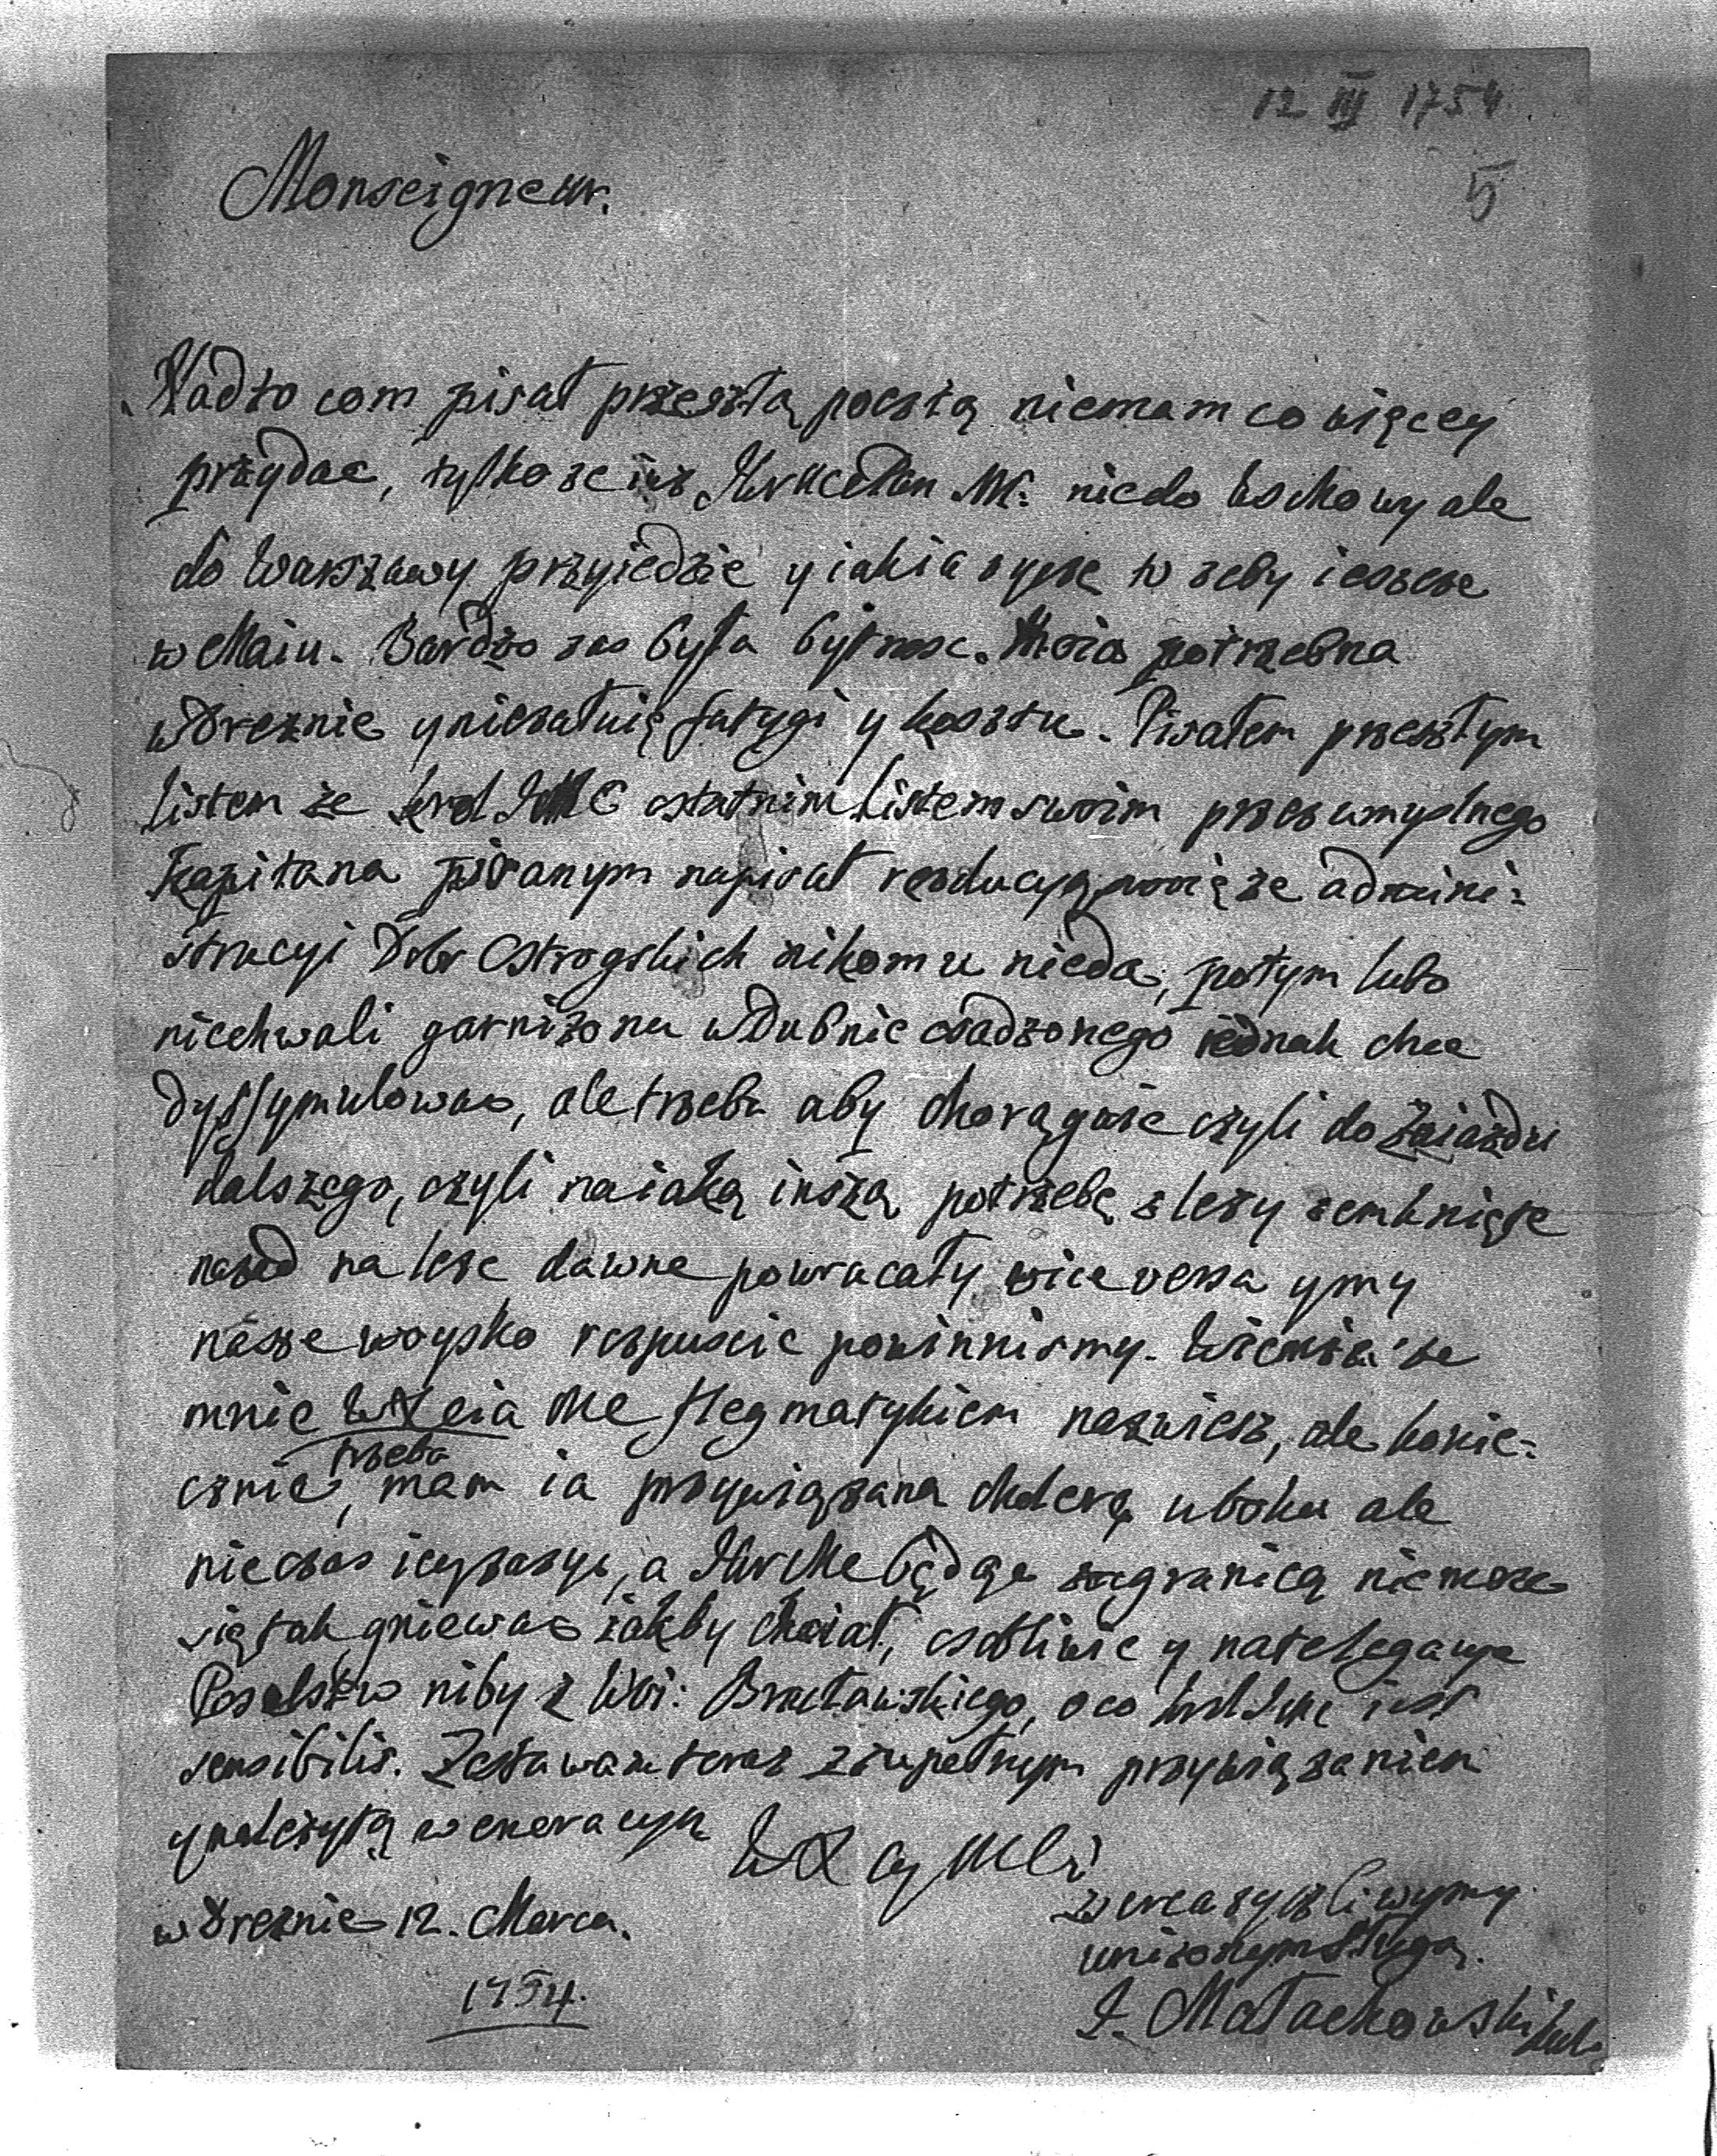 12 III 1754
5
Monseigneur.
Nadto com pisał przeszłą pocztą niemam co więcey
przydac, tylko ze iuz nie do Wschowy ale
do Warszawy przyiedzie y iakia zeby ieszcze
w Maiu. Bardzo zas była bytnosc moia potrzebna
w Dreznie y niezałuię fatygi y kosztu. Pisałem przeszłym
listem że krol JMC ostatnim listem swoim przez umyslnego
Kapitana pisanym napisał rezolucyą swoię ze admini:
stracyi Dobr Ostrogskich nikomu nieda, potym lubo
niechwali garnizonu w Dubnie osadzonego iednak chce
dyssymulowac, ale trzeba aby chorągwie czyli do Zaiazdu
dalszego, czyli na iaką inszą potrzebę z lezy zemknięte
nazad na leze dawne powracały vice versa y my
nasze woysko rozpuscic powinnismy. Wiem ze
mnie WXcia Mc flegmatykiem nazwiesz, ale konie:
cznie trzeba, mam ia przywiązaną cholerę u boku ale
nie czas iey zazyc, a będąc zagranicą niemoze
się tak gniewac iakby chciał, osobliwie y na relegacye
Poselstw niby z Wdi: Bracławskiego, o co krol Jmc iest
sensibilis. Zostawam teraz z zupełnym przywiązaniem
y nalezytą weneracyą
WXcy Mci
w Dreznie 12. Marca.
1754.
zyczliwym y
unizonym sługą.
J. Małachowski